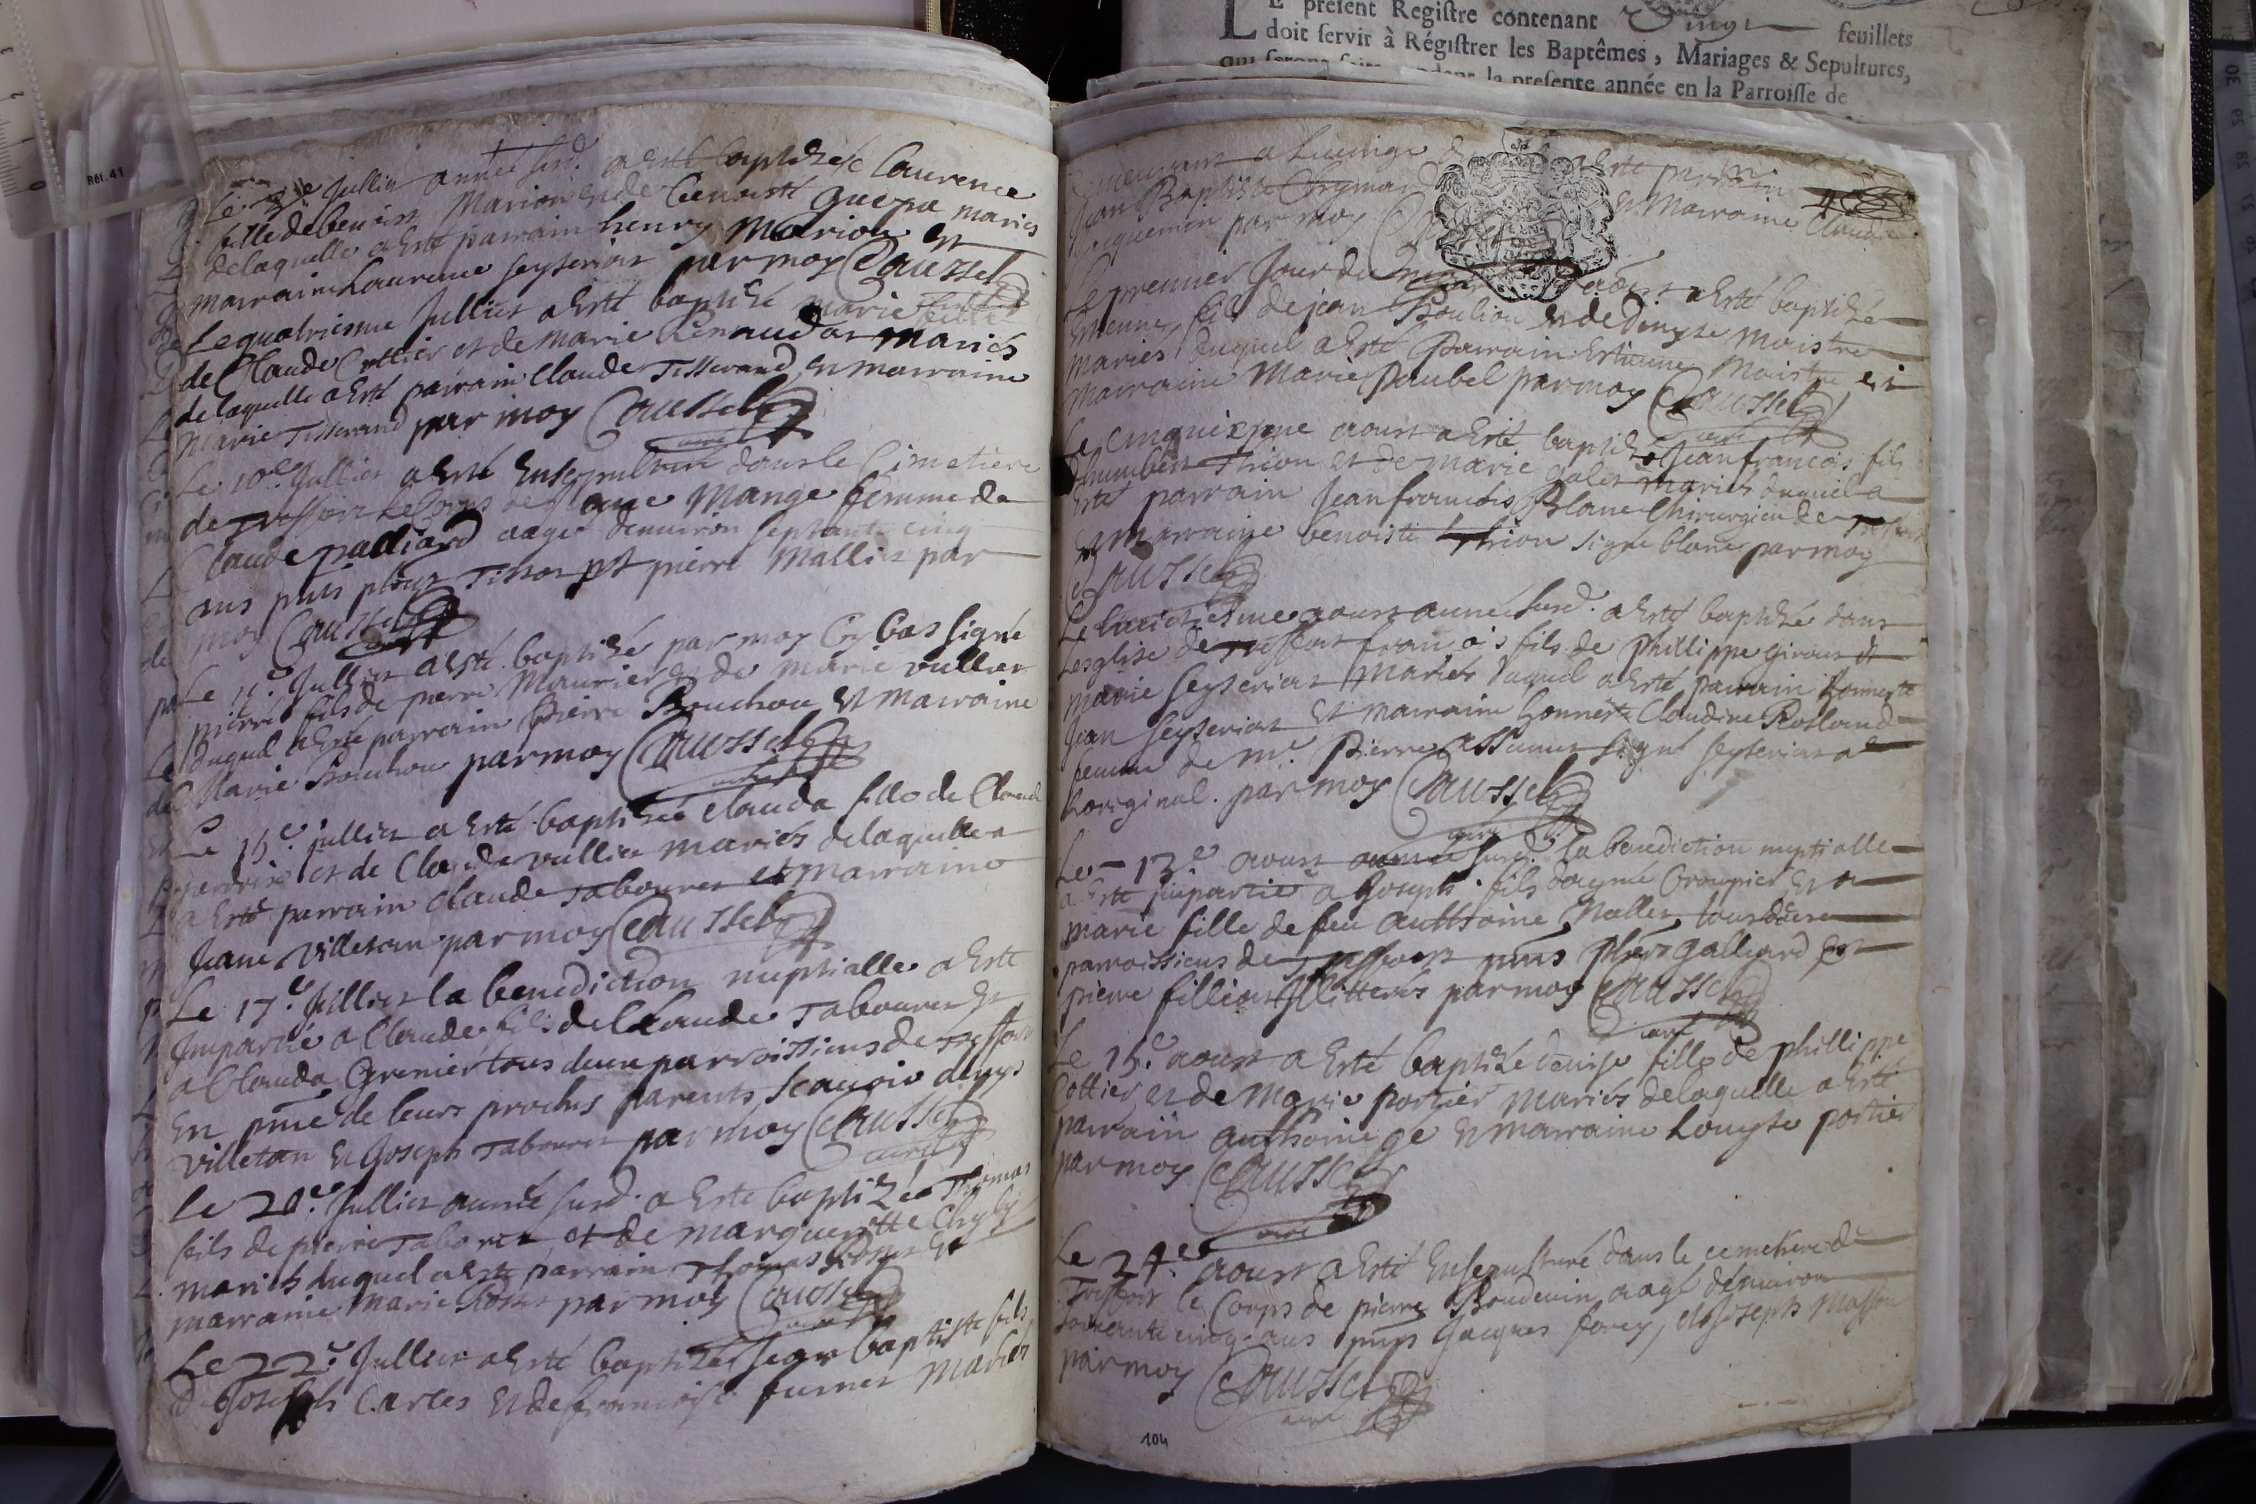 Jullier année susd. a esté baptizée Laurence
fille de benoist Marion et de Benoiste mariés
de laquelle a esté parrain henry Marion et
marraine Laurence seyserias par moy Causset
Le quatriesme Jullier a esté baptizé marie fille
de Claude Cottier et de marie Renaudat mariés
de laquelle a esté parrain Claude Tisserand, et marraine
Marie Tisserand par moy Causset curé
Le 10e Jullier a esté Ensepulturé dans le Cimetiere
de Treffort le Corps de Mange femme de
Claude palliard aagée denuiron septante cinq
ans pnts Tissot pierre Mallier par
moy Causset curé
Le 11e Jullier a esté baptizé par moy Cy bas signé
pierre fils de pierre Maurier et de marie vullier
duquel a esté parrain pierre Bouchou et marraine
Marie Bouchou par moy Causset curé
Le 15e jullier a esté baptizée clauda fille de Claude
perdrix et de Clauda vullier mariés de laquelle a
a esté parrain claude Tabouret et marraine
Jeane villetan par moy Causset
Le 17e Jullier la benediction nuptialle a este
Impartie a Claude fils de Claude Tabouret et
a Clauda Grenier tous deux parroissiens de Treffort
En pnce de leurs proches parents, scauoir denys
villetan et Joseph Tabouret par moy Causset curé
le 20e Jullier année susd. a este baptizé Thomas
fils de pierre Tabouret et de margueritte
mariés duquel a este parrain Thomas et
marraine Marie par moy Causset curé
Le 22e Jullier a esté baptizé Jean baptiste fils
de Joseph Carles et de françoise furnet mariés
L E present Registre contenant Vingt feuillets
doit servir à Régistrer les Baptêmes, Mariages & Sepultures,
la presente année en la Parroisse de
a esté parrain
Jean Baptiste et Marraine Claudine
par moy
Le premier Jour du aoust a esté baptizé
Estienne, fils de jean Boulion et de Denyse Maistre
mariés duquel a esté Parrain Estienne Maistre et
marraine Marie Paubel par moy Causset curé
Le Cinquiesme aoust a esté baptizé Jean françois fils
d'humbert Thion et de marie Galet mariés duquel a
esté parrain Jean françois Blanc Chirurgien de Treffort
Et marraine benoiste Thion signé blanc par moy
Causset
Le huictiesme aoust année susd. a esté baptizé dans
Lesglise de Treffort françois fils de phillippe giroux et
marie seyserias mariés duquel a esté parrain honneste
Jean seyserias et marraine honneste Claudine Rolland
femme de mr. Pierre signé seyserias a
Loriginal. par moy Causset curé
Le 13e aoust année susd. la benediction nuptialle
a este impartie a Joseph fils d'aymé Croupier et a
marie fille de feu anthoine Nallet tous deux
parroissiens de Treffort pnts galliard et
pierre fillion Illitterés par moy Causset curé
Le 15e aoust a esté baptizée Denise fille de phillippe
Cottier et de Marie portier mariés de laquelle a esté
parrain anthoine ge et marraine Louyse portier
par moy Causset curé
Le 24e aoust a esté Ensepulturé dans le cemetiere de
Treffort le Corps de pierre Boudeuin aagé denuiron
soixante cinq ans pnts Jacques forey, et Joseph Masson
par moy Causset curé
104
Réf. 41